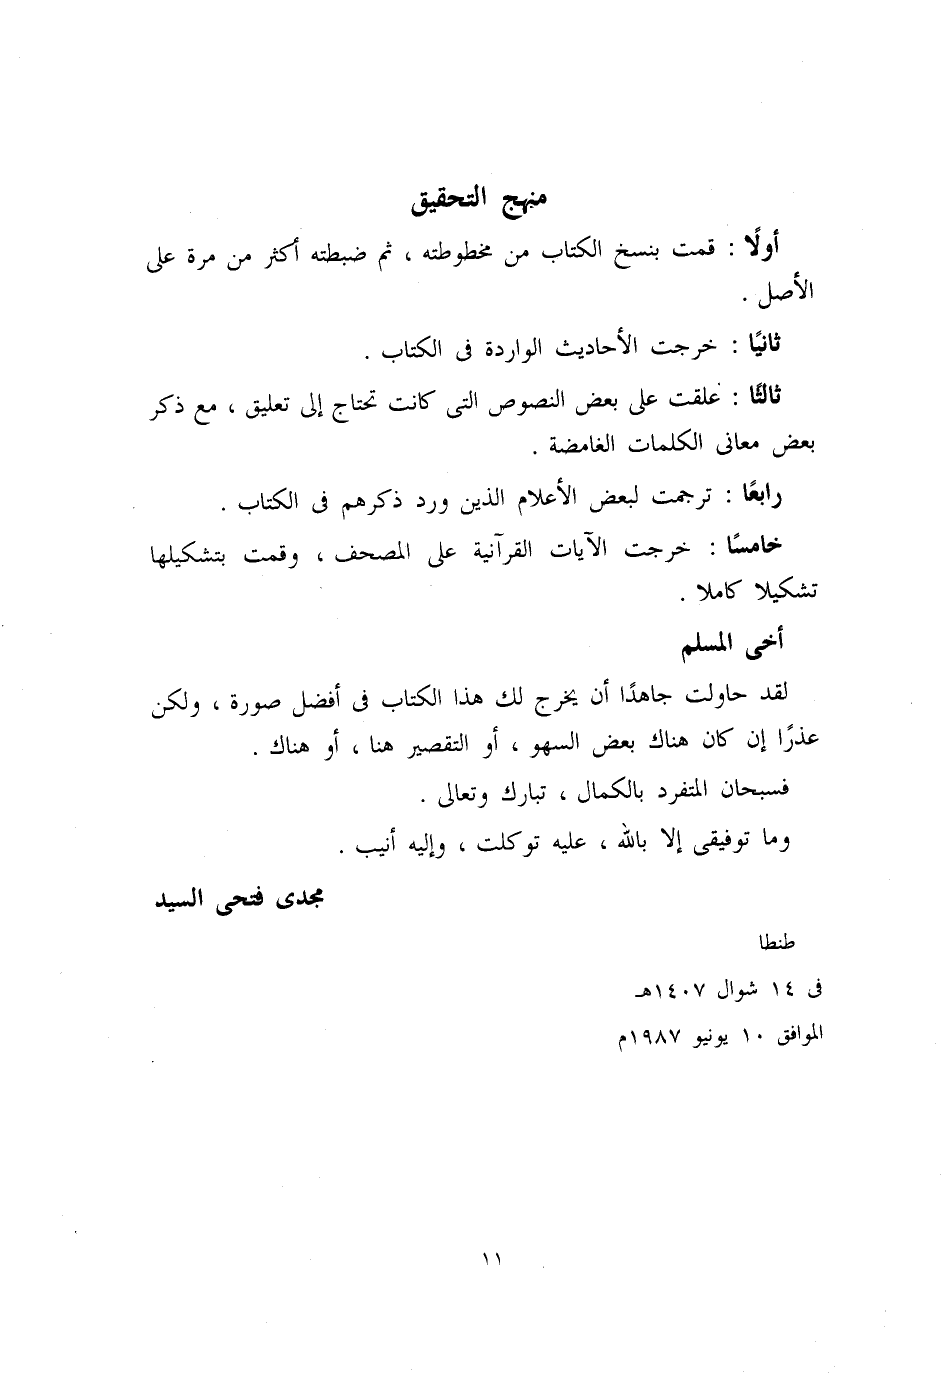 منهج التحقيق
أولًا : قمت بنسخ الكتاب من مخطوطته ، ثم ضبطته أكثر من مرة على
الأصل .
ثانيًا : خرجت الأحاديث الواردة فى الكتاب .
ثالثًا : علقت على بعض النصوص التى كانت تحتاج إلى تعليق ، مع ذكر
بعض معانى الكلمات الغامضة .
رابعًا : ترجمت لبعض الأعلام الذين ورد ذكرهم فى الكتاب .
خامسًا : خرجت الآيات القرآنية على المصحف ، وقمت بتشكيلها
تشكيلا كاملا .
أخى المسلم
لقد حاولت جاهدًا أن يخرج لك هذا الكتاب فى أفضل صورة ، ولكن
عذرًا إن كان هناك بعض السهو ، أو التقصير هنا ، أو هناك .
فسبحان المتفرد بالكمال ، تبارك وتعالى .
وما توفيقى إلا بالله ، عليه توكلت ، وإليه أنيب .
مجدى فتحى السيد
طنطا
فى ١٤ شوال ١٤٠٧هـ
الموافق ١٠ يونيو ١٩٨٧م
١١